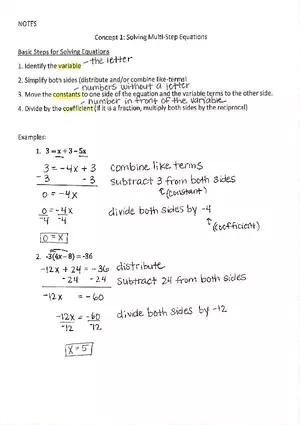 NOTES
Concept 1: Solving Multi-Step Equations
Basic Steps for Solving Equations
1. Identify the variable - the letter
2. Simplify both sides (distribute and/or combine like-terms)
- numbers without a letter
3. Move the constants to one side of the equation and the variable terms to the other side.
- number in front of the variable
4. Divide by the coefficient (if it is a fraction, multiply both sides by the reciprocal)
Examples:
1. 3 = x + 3 – 5x
3 = -4x + 3 combine like terms
-3 -3 subtract 3 from both sides
0 = -4x ↑(constant)
0 = -4x divide both sides by -4
-4 -4 ↑(coefficient)
0 = x
2. -3(4x – 8) = -36
-12x + 24 = -36 distribute
-24 -24 subtract 24 from both sides
-12x = -60
-12x = -60 divide both sides by -12
-12 -12
x = 5